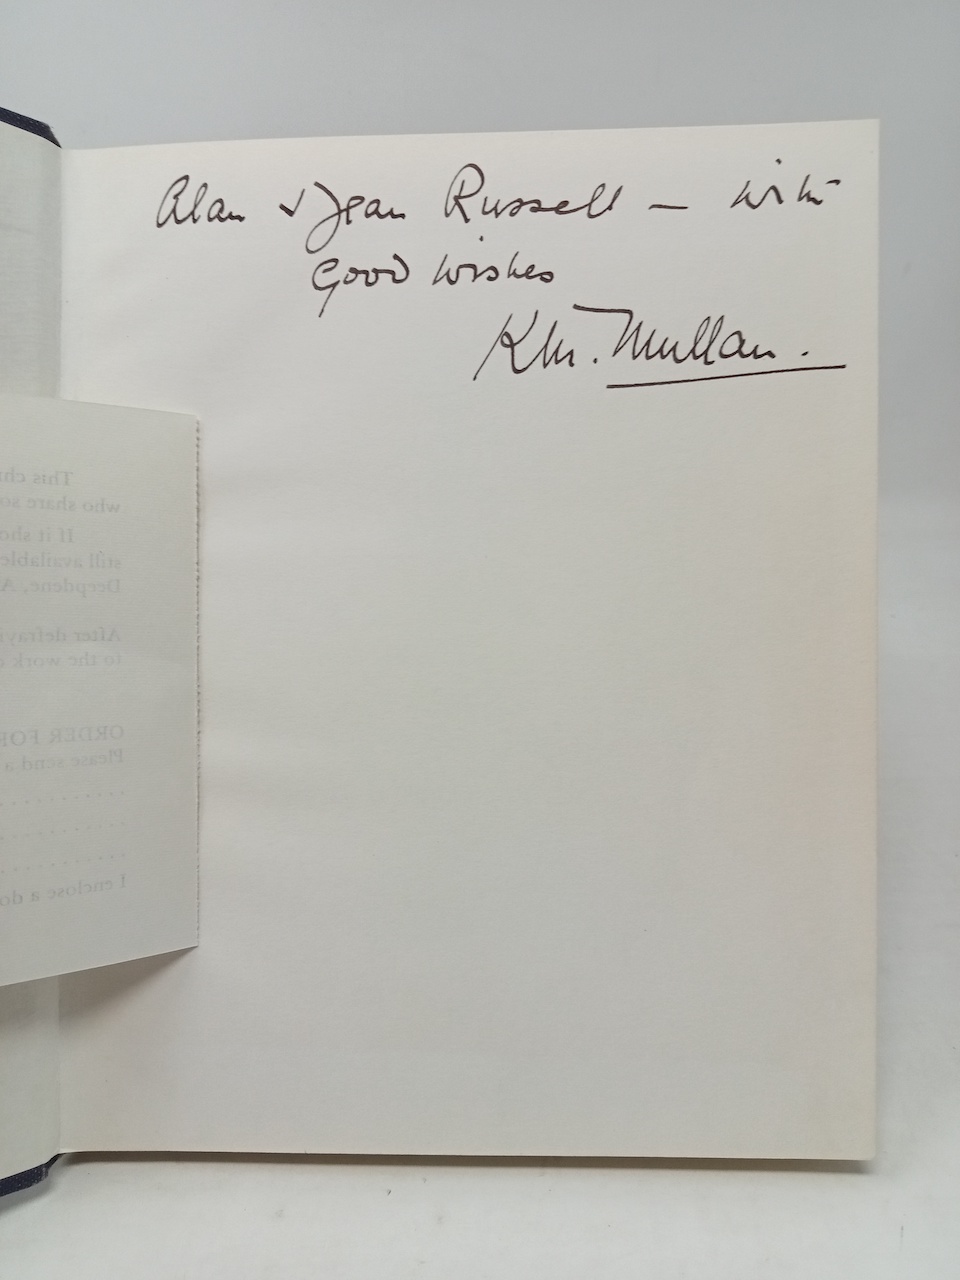 Alan & Jean Russell — with
Good Wishes
Kevin Mullan.
This ch
who share so
If it sho
still available
Deepdene, A
After defrayi
to the work o
ORDER FOR
Please send a
. . . . . . . . . . .
. . . . . . . . . . .
. . . . . . . . . . .
I enclose a do